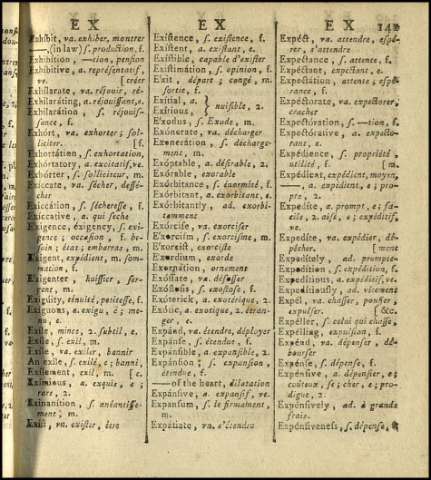 E X
E X
E X
Exhibit, va. exhiber, montrer
—, (in law) s. production, f.
Exhibition, —tion, pension
Exhibitive, a. représentatif,
ve. [créer
Exhilarate, va. réjouir, ré-
Exhilaráting, a. réjouissant, e.
Exhilarátion, s. réjouis-
sance, f.
Exhórt, va. exhorter; sol-
liciter. [f.
Exhortátion, s. exhortation,
Exhórtatory, a. excitatif, ve.
Exhórter, s. solliciteur, m.
Exiccate, va. sécher, dessé-
cher
Exiccátion, s. sécheresse, f.
Exiccative, a. qui seche
Exigence, éxigency, s. exi-
gence; occasion, f. be-
soin; état; embarras, m.
Exigent, expédient, m. som-
mation, f.
Exigenter, huissier, ser-
gent, m.
Exigúity, ténuité, petitesse, f.
Exíguous, a. exigu, é; me-
nu, e.
Exile, mince, 2. subtil, e.
Exile, s. exil, m.
Exíle, va. exiler, bannir
An exile, s. exilé, e; banni,
Exílement, exil, m. [e.
Exímious, a. exquis, e;
rare, 2.
Exinanítion, s. anéantisse-
ment, m.
Exíst, va. exister, être
Exístence, s. existence, f.
Exístent, a. existant, e.
Exístible, capable d'exister
Existimátion, s. opinion, f.
Exit, départ; congé, m.
sortie, f.
Exítial, a.
Exitious,
} nuisible, 2.
Exodus, s. Exode, m.
Exónerate, va. décharger
Exonerátion, s. décharge-
ment, m.
Exóptable, a. désirable, 2.
Exórable, exorable
Exórbitance, s. énormité, f.
Exórbitant, a. exorbitant, e.
Exórbitantly, ad. exorbi-
tamment
Exórcise, va. exorciser
Exorcism, s. exorcisme, m.
Exorcist, exorciste
Exórdium, exorde
Exornátion, ornement
Exóssate, va. désosser
Exóstosis, s. exostose, f.
Exóterick, a. exotérique, 2.
Exótic, a. exotique, 2. étran-
ger, e.
Expánd, va. étendre, déployer
Expánse, s. étendue, f.
Expánsible, a. expansible, 2.
Expánsion; s. expansion,
étendue, f.
—of the heart, dilatation
Expánsive, a. expansif, ve.
Expánsum, s. le firmament,
m.
Expátiate, va. s'étendre
Expéct, va. attendre, espé-
rer, s'attendre
Expéctance, s. attente, f.
Expéctant, expectant, e.
Expectátion, attente; espé-
rance, f.
Expéctorate, va. expectorer,
cracher
Expectorátion, s. —tion, f.
Expéctorative, a. expecto-
rant, e.
Expédience, s. propriété
utilité, f. [m.
Expédient, expédient, moyen,
—, a. expédient, e; pro-
pre, 2.
Expedite, a. prompt, e; fa-
cile, 2. aisé, e; expéditif,
ve.
Expedíte, va. expédier, dé-
pêcher. [ment
Expedítely, ad. prompte-
Expedítion, s. expédition, f.
Expedítious, a. expéditif, ve.
Expedítiously, ad. vitement
Expél, va. chasser, pousser,
expulser. [&c.
Expéller, s. celui qui chasse,
Expélling, expulsion, f.
Expénd, va. dépenser, dé-
bourser
Expénse, s. dépense, f.
Expénsive, a. dépensier, e;
coûteux, se; cher, e; pro-
digue, 2.
Expénsively, ad. à grands
frais.
Expénsiveness, s. dépense, f.